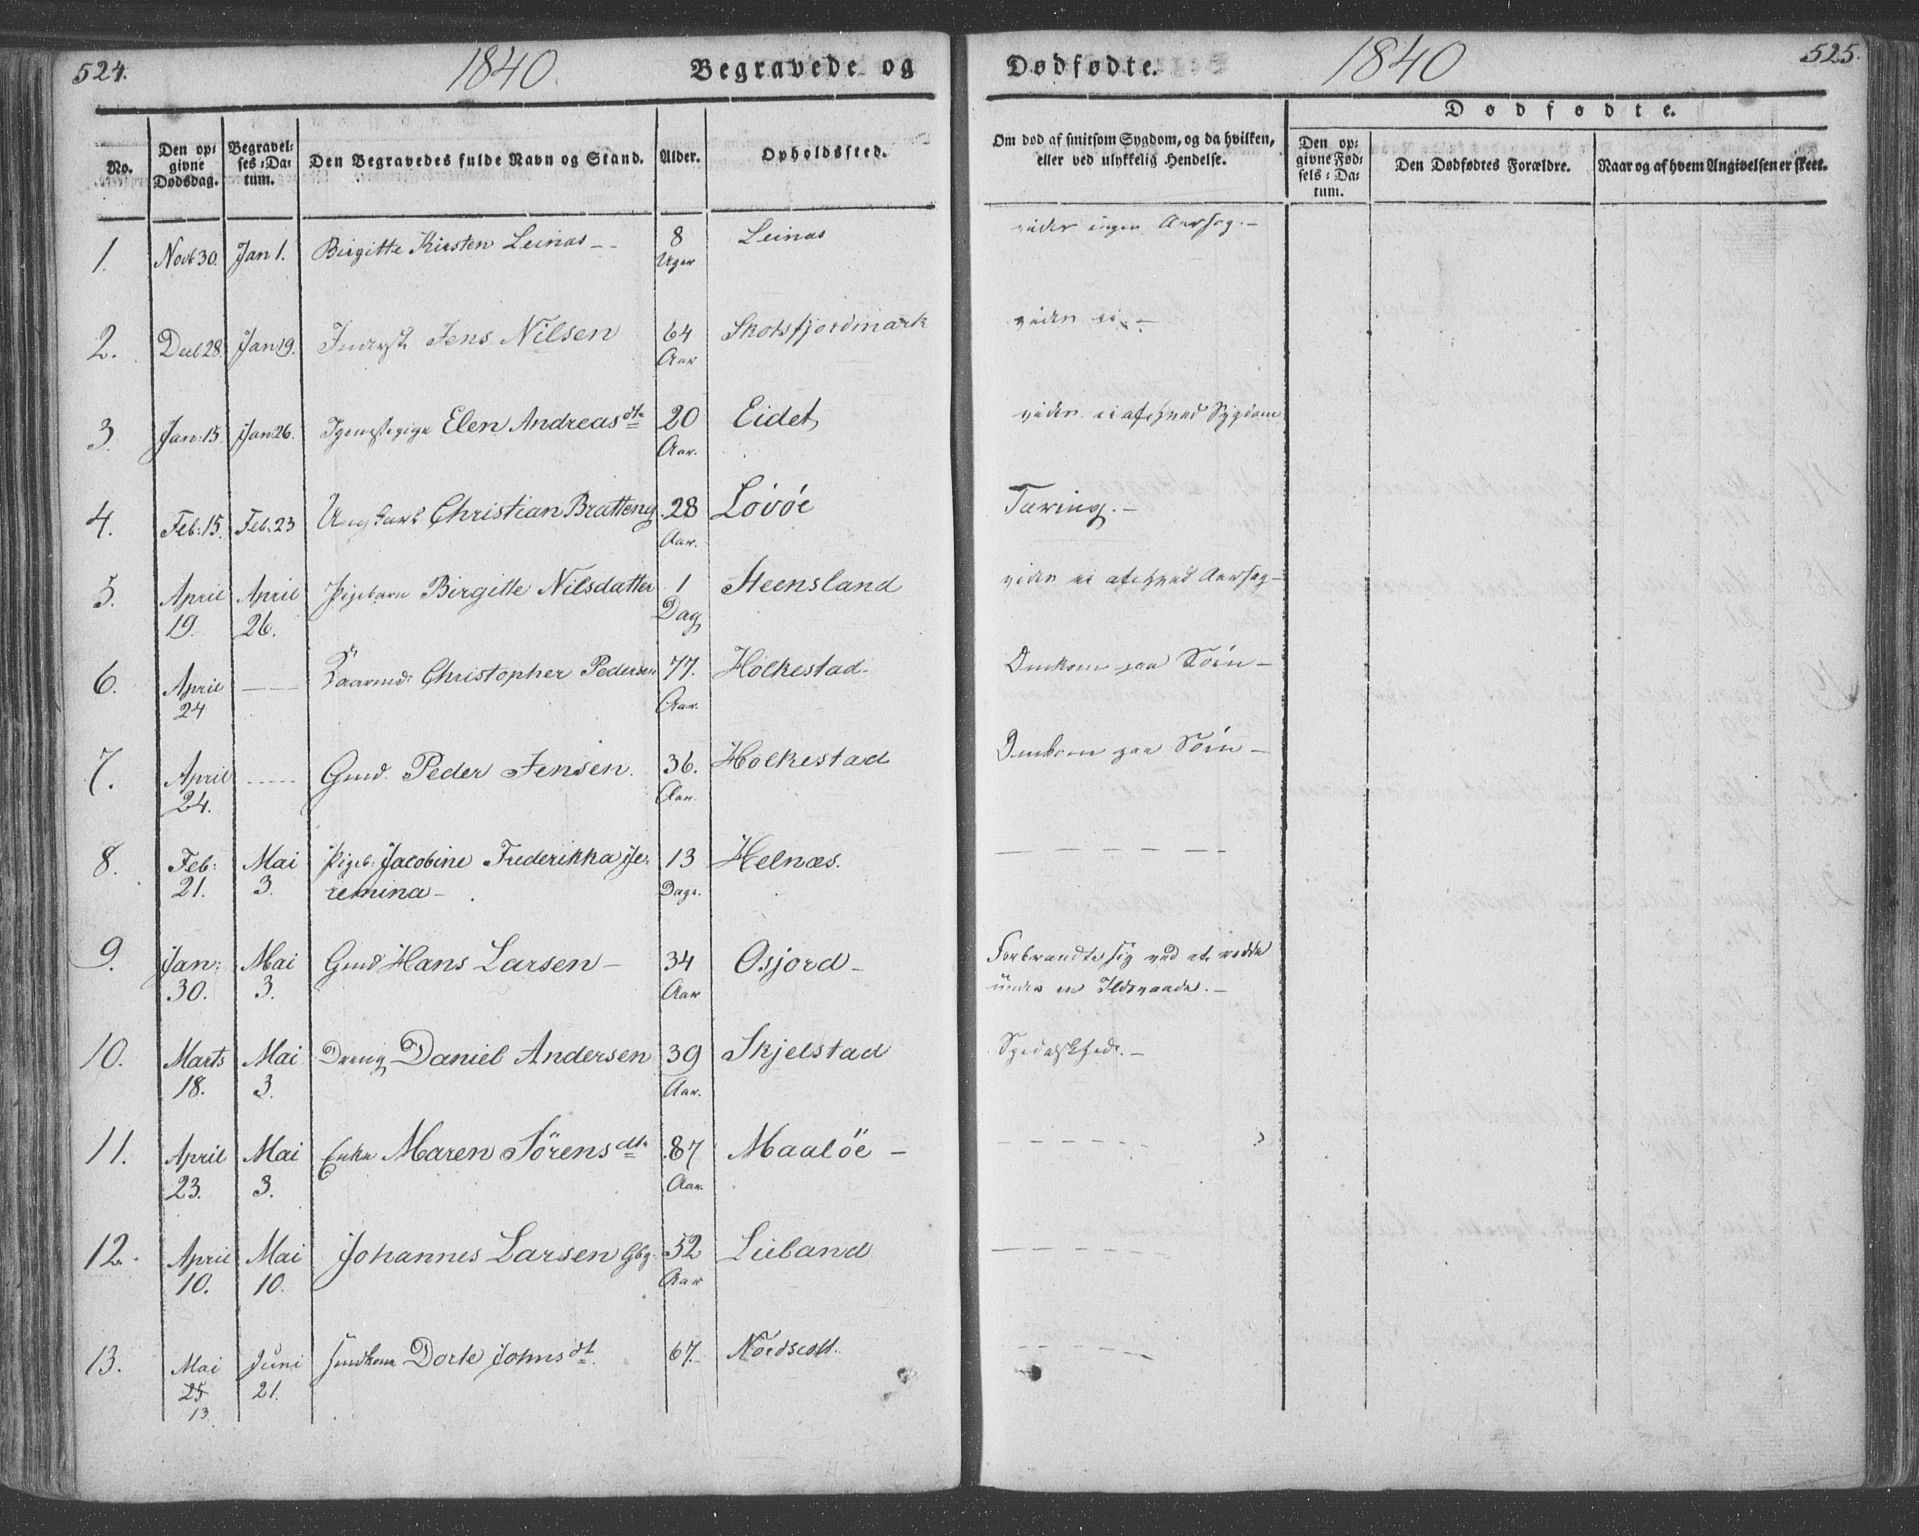 524. 1840. Begravede og
No. Den opgivne Dødsdag. Begravelses-Datum. Den Begravedes fulde Navn og Stand. Alder. Opholdssted.
1. Novb 30. Jan 1. Birgitte Kirsten Leinas -- 8 Uger Leinas
2. Decb 28. Jan 19. Inderst Jens Nilsen 64 Aar Skotsfjordmark
3. Jan: 15. Jan 26. Elen Andreasdtr 20 Aar. Eidet
4. Feb: 15. Feb: 23 Ungkarl Christian Bratteng 28 Aar. Lovöe
5. April 19. April 26. Pigebarn Birgitte Nilsdatter 1 Dag Steensland
6. April 24 — Christopher Pedersen 77. Aar. Holkestad
7. April 24. ---- Gmd. Peder Jensen. 36. Aar Holkestad
8. Feb: 21. Mai 3. Pigeb: Jacobine Frederikka Je-
remina - 13 Dage. Helnæs.
9. Jan: 30. Mai 3. Gmd Hans Larsen - 34 Aar Osjord -
10. Marts 18. Mai 3. Dreng Daniel Andersen 39 Aar. Skjelstad
11. April 23. Mai 3. Enke Maren Sörensdtr 87 Aar. Maalöe -
12. April 10. Mai 10. Johannes Larsen Gbg. 52 Aar Lieland
13. Mai 25 13 Juni 21. Dorte Johnsdt. 67. Nordscott.
Dødfødte. 1840 525.
Om død af smitsom Sygdom, og da hvilken, eller ved ulykkelig Hendelse.
Dødfødte.
Den opgivne Fødsels-Datum. Den Dødfødtes Forældre. Naar og af hvem Angivelsen er skeet.
viides ingen Aarsag. -
viides ei. -
viides ei af hvad Sygdom
Tæring. -
viides ei af hvad Aarsag -
Omkom paa Søen -
Omkom paa Søen -
Forbrændte sig ved at redde
under en Ildsvaade. -
Spedalskhed. -